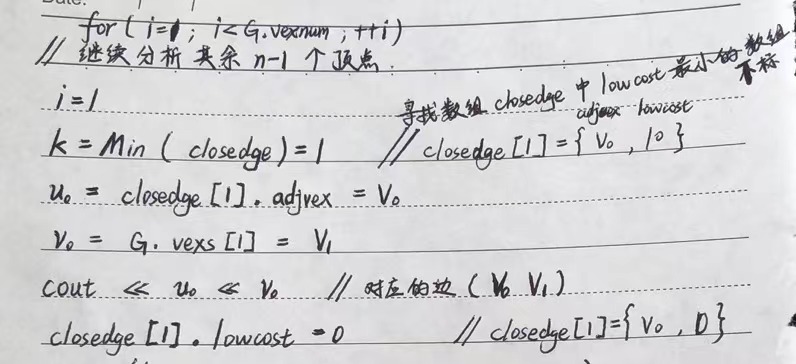 for ( i=1 ; i<G.vexnum ; ++i)
// 继续分析其余 n-1 个顶点.
i=1
寻找数组 closedge 中 lowcost 最小的数组下标
k = Min ( closedge ) = 1 // closedge [1] = { V₀ , 10 }
adjvex lowcost
u₀ = closedge [1] . adjvex = V₀
v₀ = G. vexs [1] = V₁
cout << u₀ << v₀ // 对应的边 ( V₀ V₁ )
closedge [1] . lowcost = 0 // closedge [1]={ V₀ , 0 }